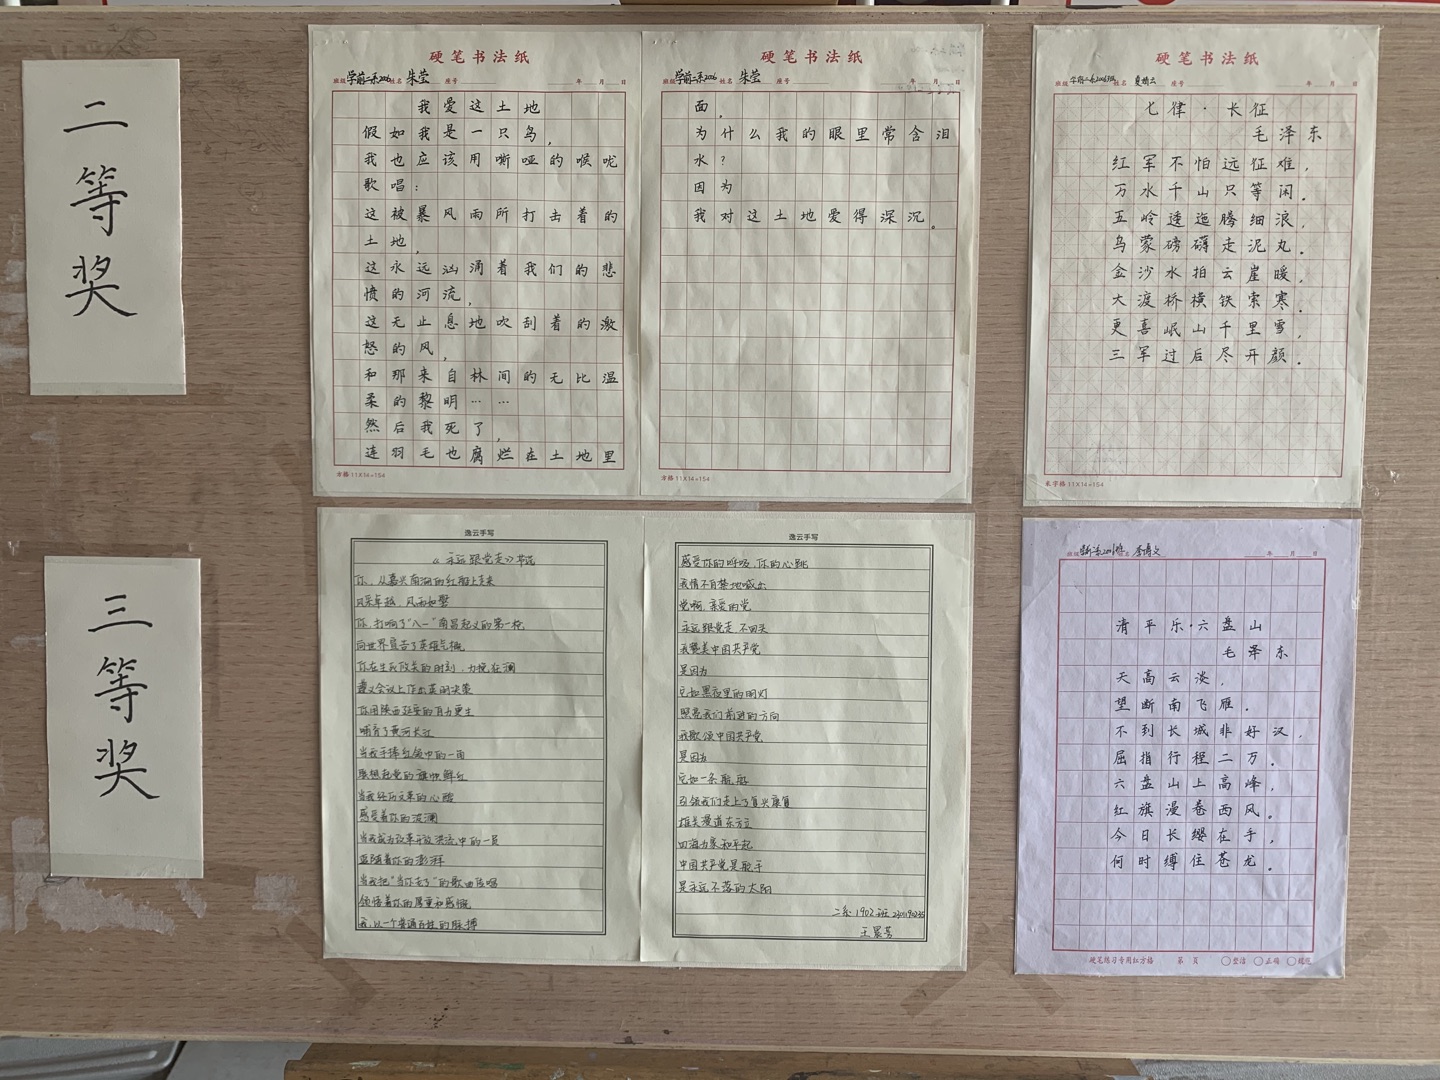 二等奖
硬笔书法纸
班级 学前二系2006 姓名 朱莹 座号 年 月 日
我爱这土地
假如我是一只鸟，
我也应该用嘶哑的喉咙
歌唱：
这被暴风雨所打击着的
土地，
这永远汹涌着我们的悲
愤的河流，
这无止息地吹刮着的激
怒的风，
和那来自林间的无比温
柔的黎明……
然后我死了，
连羽毛也腐烂在土地里
方格 11X14=154
硬笔书法纸
班级 学前二系2006 姓名 朱莹 座号 年 月 日
面。
为什么我的眼里常含泪
水？
因为
我对这土地爱得深沉。
方格 11X14=154
硬笔书法纸
姓名 座号 年 月 日
七律·长征
毛泽东
红军不怕远征难，
万水千山只等闲。
五岭逶迤腾细浪，
乌蒙磅礴走泥丸。
金沙水拍云崖暖，
大渡桥横铁索寒。
更喜岷山千里雪，
三军过后尽开颜。
米字格 11X14=154
三等奖
逸云手写
《永远跟党走》节选
你，从嘉兴南湖的红船上走来
风采卓越，风雨如磐
你，打响了“八一”南昌起义的第一枪
向世界宣告了英雄气概
你在生死攸关的时刻，力挽狂澜
遵义会议上作出英明决策
你用陕西延安的自力更生
哺育了黄河长江
当我手捧红领巾的一角
联想起党的旗帜鲜红
感受着你的波澜
当我成为改革开放洪流中的一员
蓝随着你的澎湃
当我把“当你老了”的歌曲传唱
领悟着你的厚重和感慨
我，以一个普通百姓的脉搏
逸云手写
感受你的呼吸，你的心跳
我情不自禁地喊出
党啊，亲爱的党
永远跟党走 不回头
我赞美中国共产党
是因为
它如黑夜里的明灯
照亮我们前进的方向
我歌颂中国共产党
是因为
它如一条航船
引领我们走上了复兴康复
雄关漫道东方立
四海为家和平起
中国共产党是歌手
是永远不落的太阳
二系1902班
王累芳
年 月 日
清平乐·六盘山
毛泽东
天高云淡，
望断南飞雁。
不到长城非好汉，
屈指行程二万。
六盘山上高峰，
红旗漫卷西风。
今日长缨在手，
何时缚住苍龙。
硬笔练习专用红方格 第 页 整洁 正确